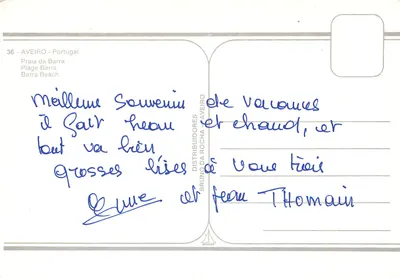 36 - AVEIRO - Portugal
Praia da Barra
Plage Barra
Barra Beach
DISTRIBUIDORES
BRUNO DA ROCHA - AVEIRO
Meilleur souvenir de vacances
il fait beau et chaud, et
tout va bien
grosses bises à vous trois
et Jean THomain